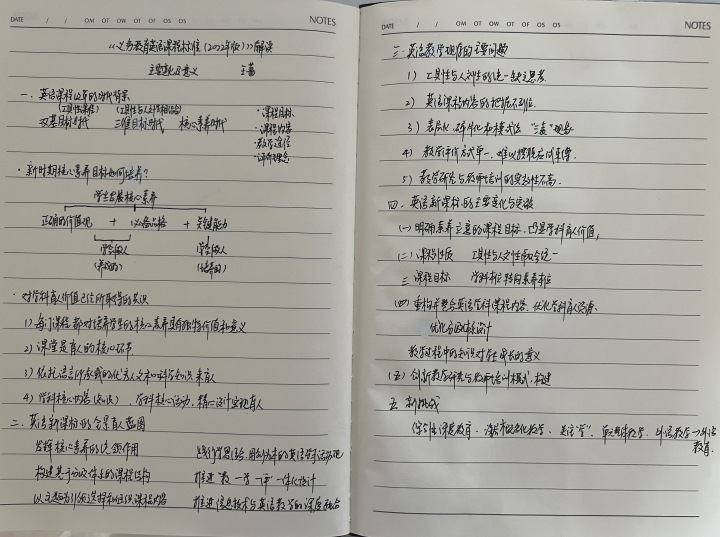 DATE / / OM OT OW OT OF OS OS NOTES
《义务教育英语课程标准（2022年版）》解读
主要变化及意义 王蔷
一、英语课程改革的时代背景
（工具性课程）（工具性与人文性相结合）
双基目标时代 三维目标时代 核心素养时代
·课程目标
·课程内容
·教学途径
·评价理念
·新时期核心素养目标如何培养？
学生发展核心素养
正确的价值观 + 必备品格 + 关键能力
学会做人 学会做人
·对学科育人价值已经所取得的共识
1）每门课程都对培养学生的核心素养具有独特价值和意义
2）课堂是育人的核心环节
3）依托语言所承载的优秀人文和科学知识来育人
4）学科核心内容（知识），学科核心活动，精心设计实现育人
二、英语新课标的全景育人蓝图
发挥核心素养的统领作用 践行学思结合、用创为本的英语学习活动观
构建基于分级体系的课程结构 推进"教—学—评"一体化设计
以主题为引领选择和组织课程内容 推进信息技术与英语教学的深度融合
DATE / / OM OT OW OT OF OS OS NOTES
三、英语教学现存的主要问题
1）工具性与人文性的统一缺乏思考
2）英语课程内容的把握不到位
3）表层化、碎片化和模式化 "三化"现象
4）教学评价方式单一，难以摆脱应试束缚
5）教学研究与教师培训的实效性不高
四、英语新课标的主要变化与突破
（一）明确素养立意的课程目标，凸显学科育人价值，
（二）课程性质 工具性与人文性融合统一
三 课程目标 学科本位转向素养本位
（四）重构并整合英语学科课程内容，优化学科育人资源
优化分级目标设计
教学过程中的知识对学生成长的意义
（五）创新教学研究与教师培训模式，构建
五、新挑战
教育.